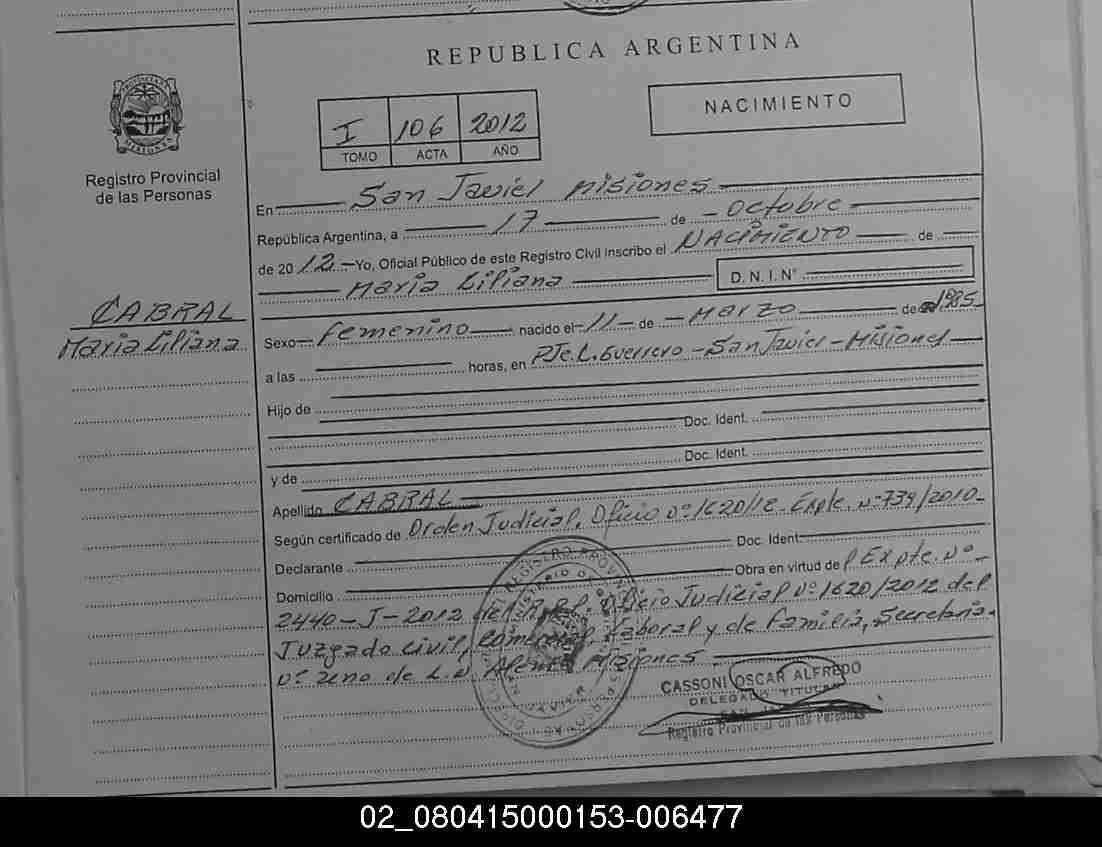 REPUBLICA ARGENTINA
NACIMIENTO
PROVINCIA DE MISIONES
I 106 2012
TOMO ACTA AÑO
Registro Provincial
de las Personas
En San Javiel Misiones
República Argentina, a 17 de Octubre
de 2012 - Yo, Oficial Público de este Registro Civil inscribo el NACIMIENTO de
Maria Liliana D.N.I. N°
CABRAL
Maria Liliana
Sexo Femenino nacido el 11 de Marzo de 1985
a las horas, en PJe. L. Guerrero - San Javiel - Misiones
Hijo de
Doc. Ident.
y de Doc. Ident.
Apellido CABRAL
Según certificado de Orden Judicial, Oficio N° 1620/12 Expte. N° 739/2010
Declarante Doc. Ident.
Domicilio Obra en virtud de Expte. N°
2440-I-2012 del Oficio Judicial N° 1620/2012 del
Juzgado Civil, Comercial, Laboral y de Familia, Secretaria
N° uno de L.N. Alem Misiones
CASSONI OSCAR ALFREDO
DELEGADO TITULAR
Registro Provincial de las Personas
02_080415000153-006477